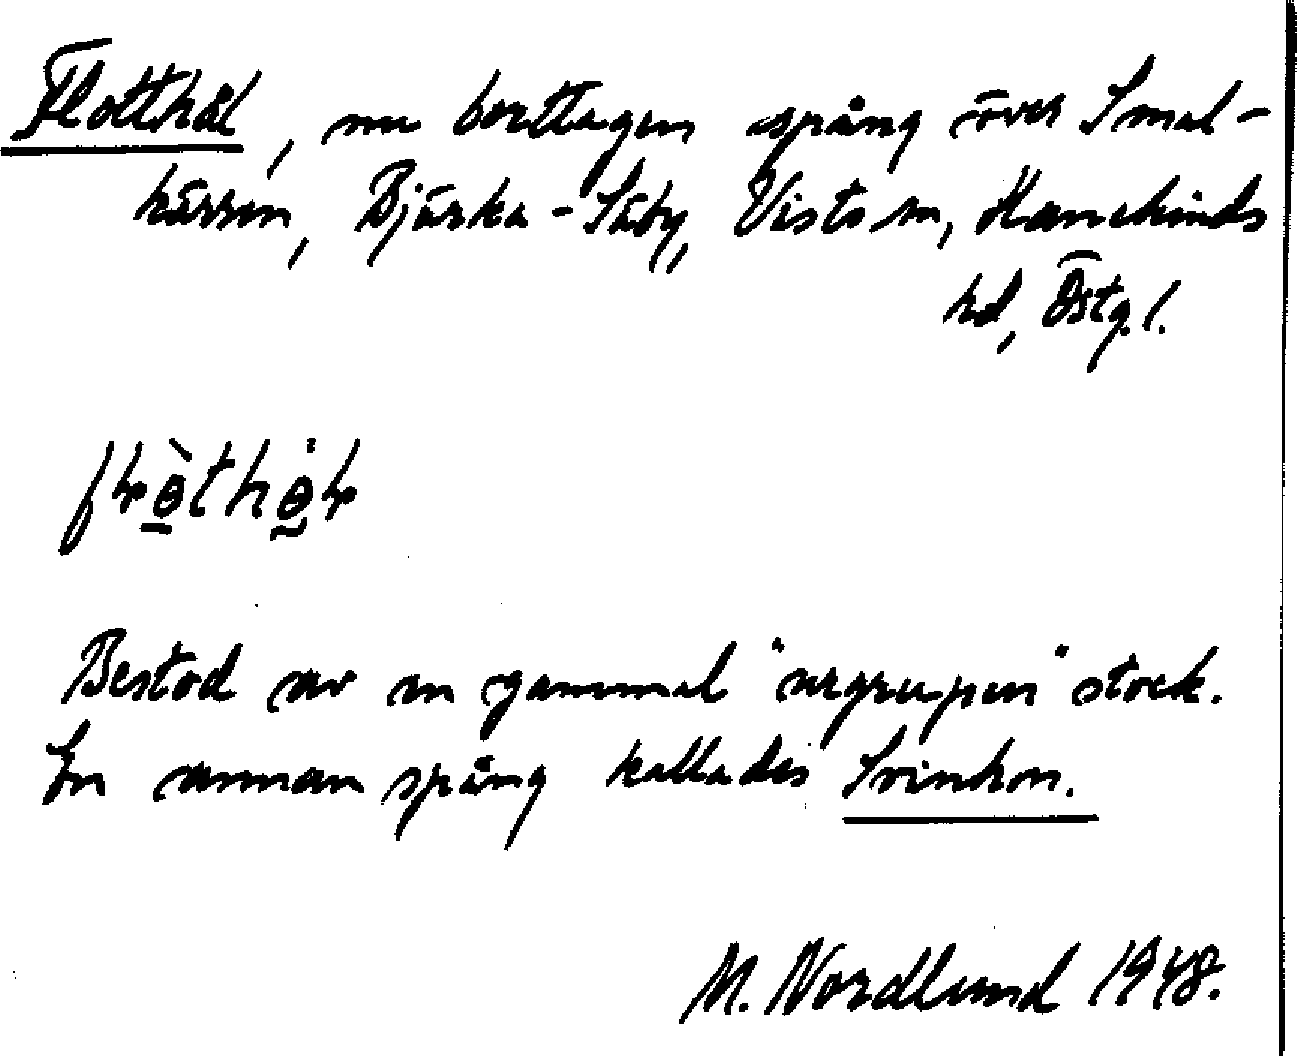 Flotthål, nu borttagen spång över Smal-
kärren, Bjärka-Säby, Vists sn, Hanekinds
hd, Östg.l.
Bestod av en gammal "urgrupen" stock.
En annan spång kallades Svinhon.
M. Nordlund 1948.